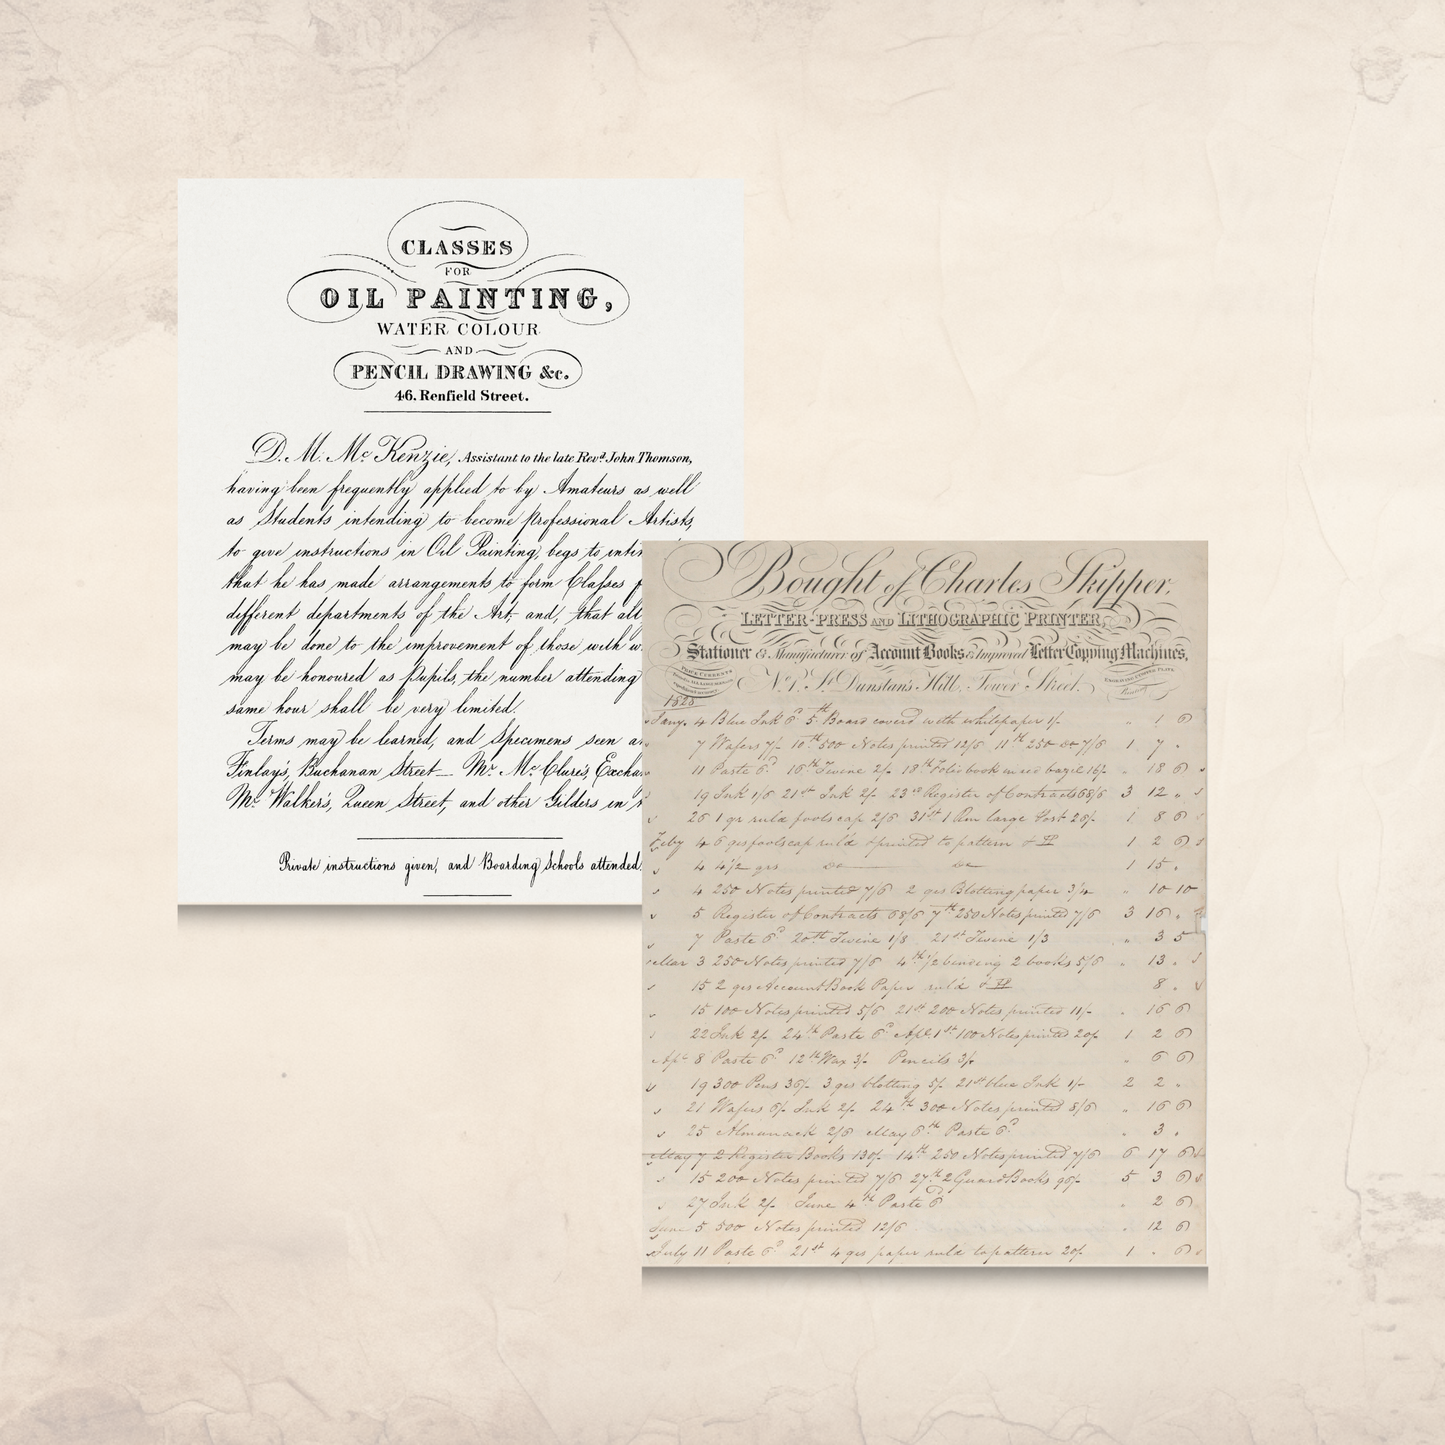 CLASSES
FOR
OIL PAINTING,
WATER COLOUR
AND
PENCIL DRAWING &c.
46. Renfield Street.
D. M. Mc Kenzie, Assistant to the late Revd. John Thomson,
having been frequently applied to by Amateurs as well
as Students intending to become professional Artists,
to give instructions in Oil Painting, begs to
that he has made arrangements to form Classes
different departments of the Art, and, that all
may be done to the improvement of those with
may be honoured as Pupils, the number attending
same hour shall be very limited.
Terms may be learned, and Specimens seen
Finlay's, Buchanan Street— Mr. Mc Clure's,
Mr. Walker's, Queen Street, and other Gilders in
Private instructions given, and Boarding Schools attended
Bought of Charles Skipper,
LETTER-PRESS AND LITHOGRAPHIC PRINTER,
Stationer & Manufacturer of Account Books & Improved Letter Copying Machines,
No. 1, St. Dunstan's Hill, Tower Street.
PRICE CURRENTS
1825
Jany. 4 Blue Ink 6d 5th Board coverd with white paper 1/- " 1 6
7 Wafers 7/- 10th 500 Notes printed 12/6 11th 250 do 7/6 1 7 "
11 Paste 6d 16th Twine 2/- 18th Folio book in red bazil 16/- " 18 6
19 Ink 1/6 21st Ink 2/- 23rd Register of Contracts 68/6 3 12 "
26 1 qr ruld foolscap 2/6 31st 1 Rm large Post 26/- 1 8 6
Feby 4 6 qrs foolscap ruld & printed to pattern 1 2 6
4 4 1/2 qrs do do 1 15 "
4 250 Notes printed 7/6 2 qrs Blotting paper 3/4 " 10 10
5 Register of Contracts 68/6 7th 250 Notes printed 7/6 3 16 "
7 Paste 6d 20th Twine 1/8 21st Twine 1/3 " 3 5
Mar 3 250 Notes printed 7/6 4th 1/2 binding 2 books 5/6 " 13 "
15 2 qrs Account Book Paper ruld 8 "
15 100 Notes printed 5/6 21st 200 Notes printed 11/- " 16 6
22 Ink 2/- 24th Paste 6d Apl. 1st 100 Notes printed 20/- 1 2 6
Apl 8 Paste 6d 12th Wax 3/- Pencils 3/- " 6 6
19 300 Pens 36/- 3 qrs blotting 5/- 21st blue Ink 1/- 2 2 "
21 Wafers 6/- Ink 2/- 24th 300 Notes printed 8/6 " 16 6
25 Almanack 2/6 May 6th Paste 6d " 3 "
May 7 2 Register Books 130/- 14th 250 Notes printed 7/6 6 17 6
15 200 Notes printed 7/6 27th 2 Guard Books 96/- 5 3 6
27 Ink 2/- June 4th Paste 6 " 2 6
June 5 500 Notes printed 12/6 " 12 6
July 11 Paste 6d 21st 4 qrs paper ruld to pattern 20/- 1 " 6